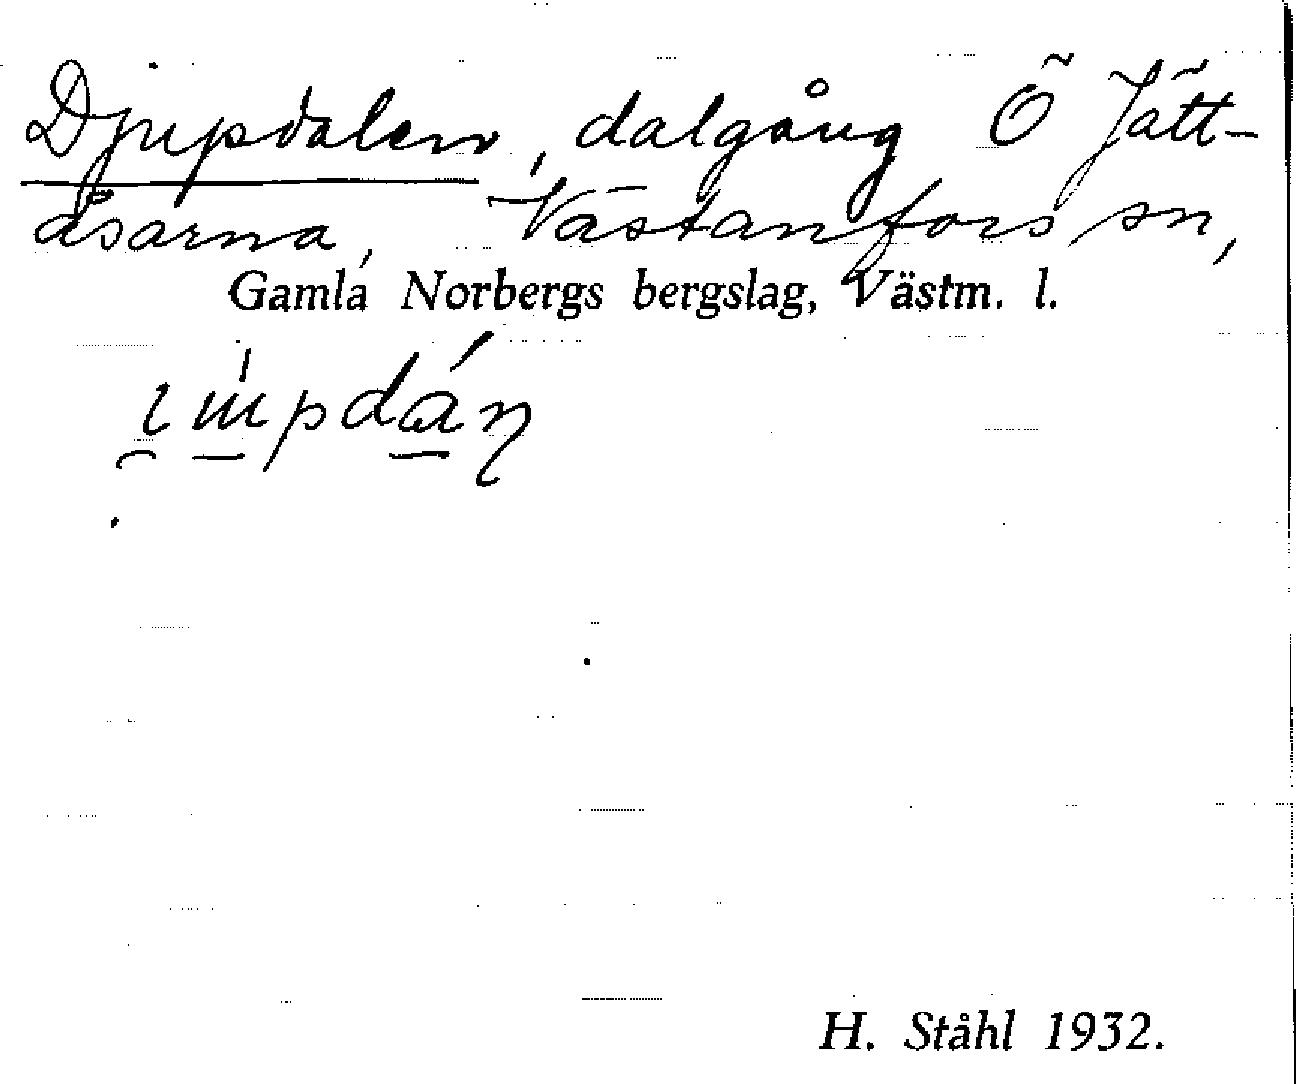 Djupdalen, dalgång Ö Jätt-
åsarna, Västanfors sn,
Gamla Norbergs bergslag, Västm. l.
H. Ståhl 1932.